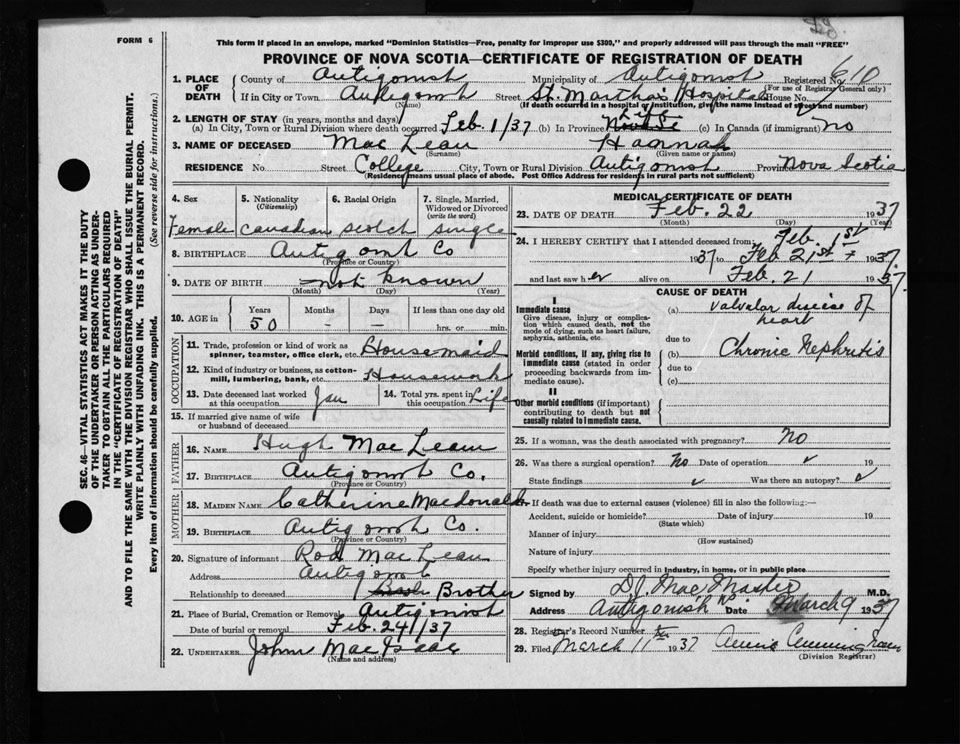 FORM 6
This form if placed in an envelope, marked "Dominion Statistics—Free, penalty for improper use $300," and properly addressed will pass through the mail "FREE"
PROVINCE OF NOVA SCOTIA—CERTIFICATE OF REGISTRATION OF DEATH
1. PLACE OF DEATH County of Antigonish Municipality of Antigonish Registered No. 610
(For use of Registrar General only)
If in City or Town Antigonish Street St. Martha's Hospital House No.
(Name) (If death occurred in a hospital or institution, give the name instead of street and number)
2. LENGTH OF STAY (in years, months and days)
(a) In City, Town or Rural Division where death occurred Feb. 1/37 (b) In Province Life (c) In Canada (if immigrant) no
3. NAME OF DECEASED Mac Lean Hannah
(Surname) (Given name or names)
RESIDENCE No. Street College City, Town or Rural Division Antigonish Province Nova Scotia
(Residence means usual place of abode. Post Office Address for residents in rural parts not sufficient)
4. Sex 5. Nationality (Citizenship) 6. Racial Origin 7. Single, Married, Widowed or Divorced (write the word)
Female Canadian scotch single
8. BIRTHPLACE Antigonish Co
(Province or Country)
9. DATE OF BIRTH not known
(Month) (Day) (Year)
10. AGE in Years Months Days If less than one day old
50 — — hrs. or min.
OCCUPATION
11. Trade, profession or kind of work as spinner, teamster, office clerk, etc. Housemaid
12. Kind of industry or business, as cotton-mill, lumbering, bank, etc. Housework
13. Date deceased last worked at this occupation Jan 14. Total yrs. spent in this occupation Life
15. If married give name of wife or husband of deceased
FATHER
16. NAME Hugh Mac Lean
17. BIRTHPLACE Antigonish Co.
(Province or Country)
MOTHER
18. MAIDEN NAME Catherine Macdonald
19. BIRTHPLACE Antigonish Co.
(Province or Country)
20. Signature of informant Rod Mac Lean
Address Antigonish
Relationship to deceased Brother
21. Place of Burial, Cremation or Removal Antigonish
Date of burial or removal Feb. 24/37
22. UNDERTAKER John Mac Isaac
(Name and address)
MEDICAL CERTIFICATE OF DEATH
23. DATE OF DEATH Feb. 22 1937
(Month) (Day) (Year)
24. I HEREBY CERTIFY that I attended deceased from: Feb. 1st
1937 to Feb 21st 1937
and last saw her alive on Feb. 21 1937
CAUSE OF DEATH
I
Immediate cause
Give disease, injury or complication which caused death, not the mode of dying, such as heart failure, asphyxia, asthenia, etc.
(a) valvular disease of heart
due to
Morbid conditions, if any, giving rise to Immediate cause (stated in order proceeding backwards from immediate cause).
(b) Chronic Nephritis
due to
(c)
II
Other morbid conditions (if important) contributing to death but not causally related to Immediate cause.
25. If a woman, was the death associated with pregnancy? No
26. Was there a surgical operation? No Date of operation 19
State findings Was there an autopsy?
27. If death was due to external causes (violence) fill in also the following:—
Accident, suicide or homicide? Date of injury 19
(State which)
Manner of injury
(How sustained)
Nature of injury
Specify whether injury occurred in industry, in home, or in public place
Signed by D. J. MacMaster M.D.
Address Antigonish Date March 9 1937
28. Registrar's Record Number
29. Filed March 11 1937
(Division Registrar)
SEC. 46—VITAL STATISTICS ACT MAKES IT THE DUTY OF THE UNDERTAKER OR PERSON ACTING AS UNDERTAKER TO OBTAIN ALL THE PARTICULARS REQUIRED IN THE "CERTIFICATE OF REGISTRATION OF DEATH" AND TO FILE THE SAME WITH THE DIVISION REGISTRAR WHO SHALL ISSUE THE BURIAL PERMIT.
WRITE PLAINLY WITH UNFADING INK. THIS IS A PERMANENT RECORD.
Every item of information should be carefully supplied. (See reverse side for instructions.)